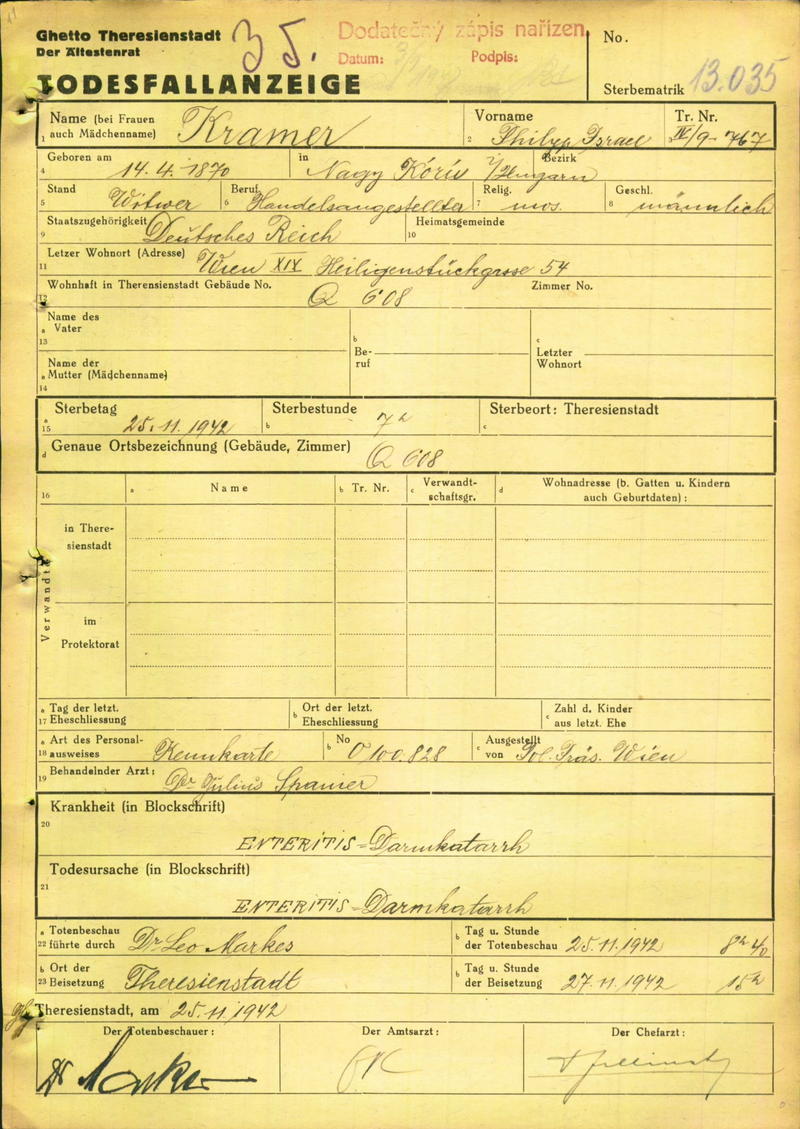 Ghetto Theresienstadt
Der Ältestenrat
35.
Dodatečný zápis nařízen
Datum: Podpis:
No.
TODESFALLANZEIGE
Sterbematrik 13.035
Name (bei Frauen auch Mädchenname) Kramer
1
Vorname
2 Philipp Israel
Tr. Nr.
3 IV/9-767
Geboren am
4 14.4.1870
in Nagy Körös
Bezirk
Ungarn
Stand
5 Witwer
Beruf
6 Handelsangestellter
Relig.
7 mos.
Geschl.
8 männlich
Staatszugehörigkeit
9 Deutsches Reich
Heimatsgemeinde
10
Letzer Wohnort (Adresse)
11 Wien XIX Heiligenstückgasse 54
Wohnhaft in Theresienstadt Gebäude No. Q 608 Zimmer No.
12
Name des
a Vater
13
b
Be-
ruf
c
Letzter
Wohnort
Name der
a Mutter (Mädchenname)
14
Sterbetag
a
15 25.11.1942
Sterbestunde
b 7h
Sterbeort: Theresienstadt
c
d Genaue Ortsbezeichnung (Gebäude, Zimmer) Q 608
16
a Name
b Tr. Nr.
c Verwandt-
schaftsgr.
d Wohnadresse (b. Gatten u. Kindern
auch Geburtdaten):
Verwandte
in There-
sienstadt
im
Protektorat
a Tag der letzt.
17 Eheschliessung
b Ort der letzt.
Eheschliessung
c Zahl d. Kinder
aus letzt. Ehe
a Art des Personal-
18 ausweises Kennkarte
b No 0100.828
c Ausgestellt
von Pol. Präs. Wien
19 Behandelnder Arzt: Dr Julius Spanier
Krankheit (in Blockschrift)
20
ENTERITIS=Darmkatarrh
Todesursache (in Blockschrift)
21
ENTERITIS=Darmkatarrh
a Totenbeschau
22 führte durch Dr. Leo Markes
b Tag u. Stunde
der Totenbeschau 25.11.1942 8h 40
b Ort der
23 Beisetzung Theresienstadt
b Tag u. Stunde
der Beisetzung 27.11.1942 15h
Theresienstadt, am 25.11.1942
Der Totenbeschauer:
Der Amtsarzt:
Der Chefarzt: